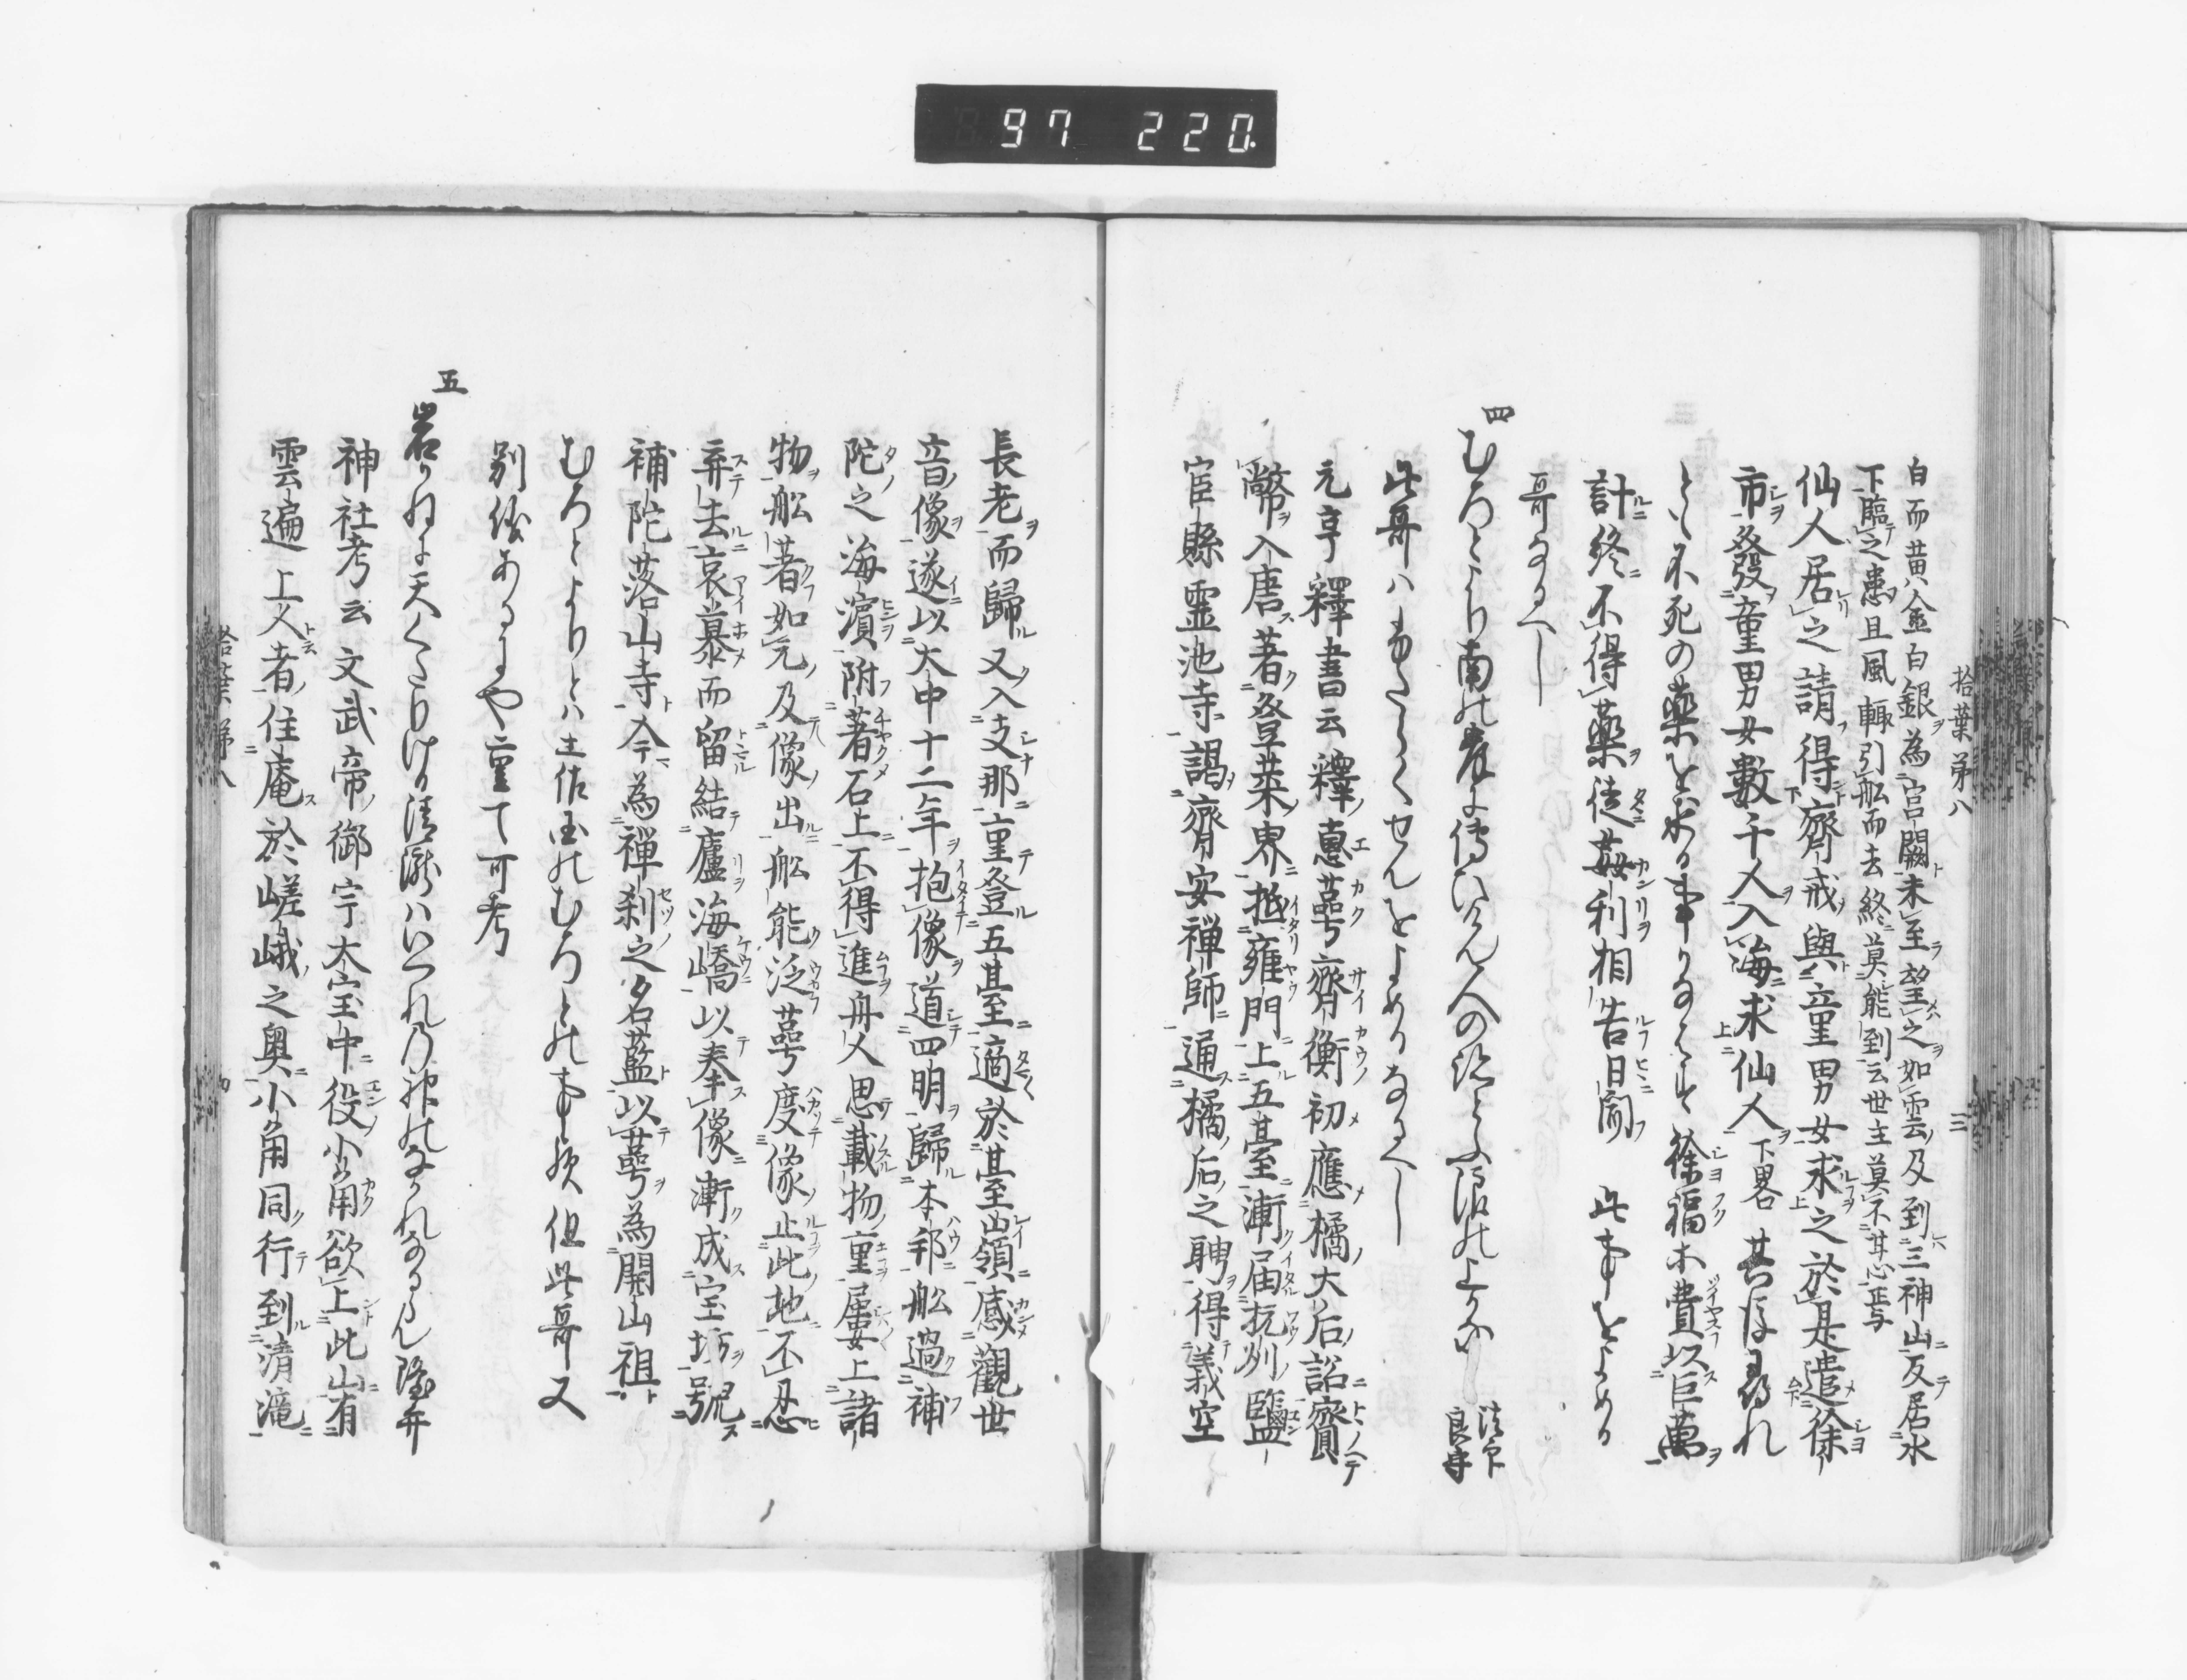 97 220
拾葉第八 三
白而黄金白銀為宮闕未至望之如雲及到三神山反居水
下臨之患且風輙引舩而去終莫能到云世主莫不甘心与
仙人居之請得齊戒與童男女求之於是遣徐
市發童男女數千人入海求仙人下畧其後
不死の薬を求る事 徐福ホ費以巨萬
計終不得薬徒姦利相告日聞 此事をよめる
哥なるへし
四
むろとより南の
浪の上かな 法印良守
此哥ハ せんをよめるなるへし
元亨釋書云釋惠蕚齊衡初應橘大后詔齎
幣入唐著登莱界抵雍門上五臺漸届杭州鹽
官縣霊池寺謁齊安禅師通橘后之聘得義空
長老而歸又入支那重登五臺適於臺嶺感觀世
音像遂以大中十二年抱像道四明歸本邦舩過補
陀之海濵附著石上不得進舟人思載物重屢上諸
物舩著如元及像出舩能泛蕚度像止此地不忍
弃去哀慕而留結廬海嶠以奉像漸成宝坊號
補陀落山寺今為禅刹之名藍以蕚為開山祖
むろとよりとハ土佐国のむろとの事歟但此哥又
別儀あるにや重て可考
五
岩かねに天くたりける清瀧ハいつれの神のなかれなるらん 隆弁
神社考云文武帝御宇大宝中役小角欲上此山有
雲遍上人者住庵於嵯峨之奥小角同行到清滝
拾葉第八